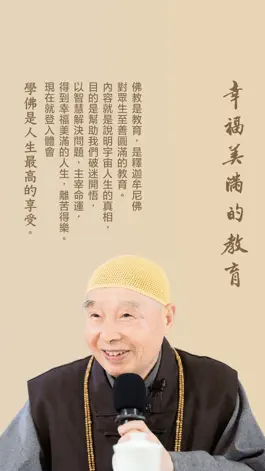 幸福美滿的教育
佛教是教育，是釋迦牟尼佛
對眾生至善圓滿的教育。
內容就是說明宇宙人生的真相，
目的是幫助我們破迷開悟，
以智慧解決問題，主宰命運，
得到幸福美滿的人生，離苦得樂。
現在就登入體會
學佛是人生最高的享受。